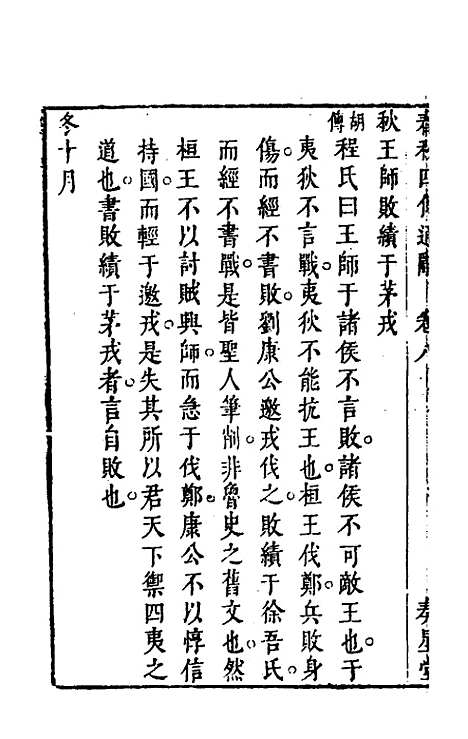 春秋四傳通辭 卷八
秋王師敗績于茅戎
胡傳
程氏曰王師于諸侯不言敗諸侯不可敵王也于
夷狄不言戰夷狄不能抗王也桓王伐鄭兵敗身
傷而經不書敗劉康公邀戎伐之敗績于徐吾氏
而經不書戰是皆聖人筆削非魯史之舊文也然
桓王不以討賊興師而急于伐鄭康公不以惇信
持國而輕于邀戎是失其所以君天下禦四夷之
道也書敗績于茅戎者言自敗也
冬十月